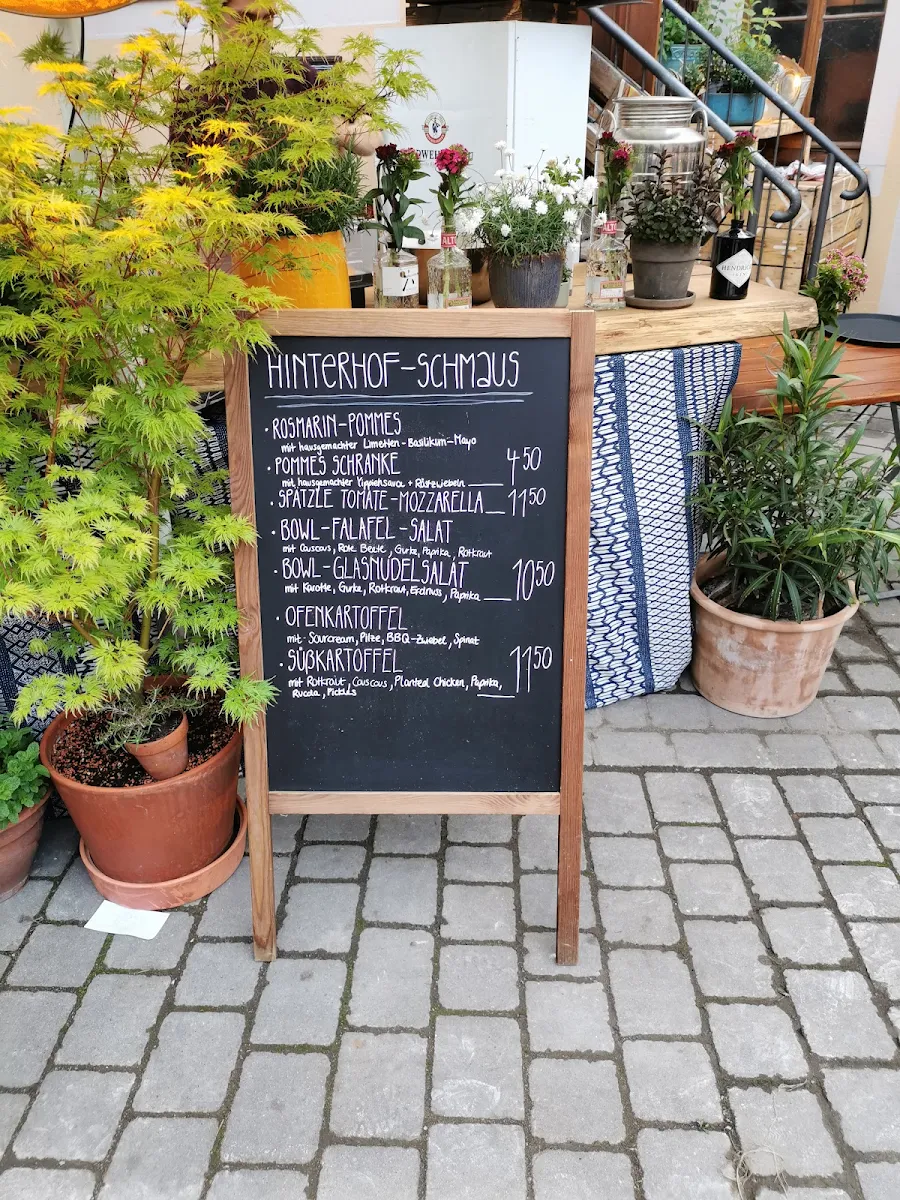 HINTERHOF-SCHMAUS
• ROSMARIN-POMMES
mit hausgemachter Limetten-Basilikum-Mayo
• POMMES SCHRANKE 4 50
mit hausgemachter + Röstzwiebeln
• SPÄTZLE TOMATE-MOZZARELLA 11 50
• BOWL-FALAFEL-SALAT
mit Couscous, Rote Beete, Gurke, Paprika, Rotkraut
• BOWL-GLASNUDELSALAT 10 50
mit Karotte, Gurke, Rotkraut, Erdnuss, Paprika
• OFENKARTOFFEL
mit Sourcream, Pilze, BBQ-Zwiebel, Spinat
• SÜßKARTOFFEL 11 50
mit Rotkraut, Couscous, Planted Chicken, Paprika,
Rucola, Pickles